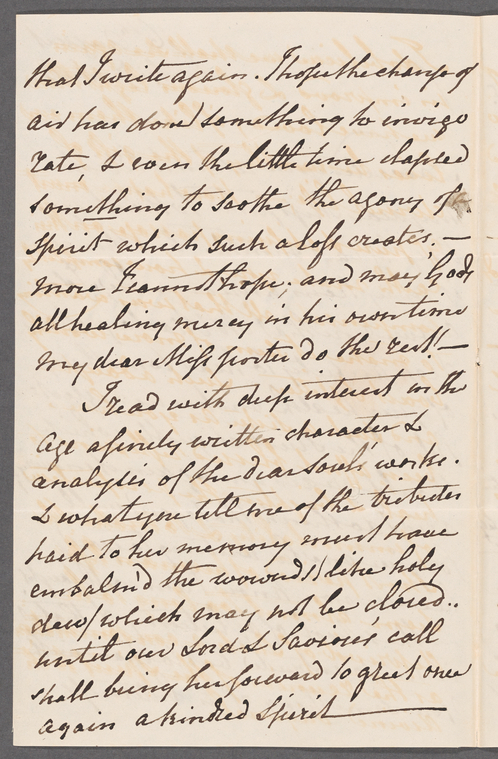 that I write again. I hope the change of
air has done something to invigo
rate, & even the little time elapsed
something to soothe the agony of
spirit which such a loss creates. —
more I cannot hope; and may God's
all healing mercy in his own time
my dear Miss porter do the rest! —
I read with deep interest in the
Age a finely written character &
analysis of the dear soul's works.
& what you tell me of the tributes
paid to her memory must have
embalm'd the wounds (like holy
dew) which may not be closed..
until our Lord & Saviours' call
shall bring her forward to greet once
again a kindred Spirit —